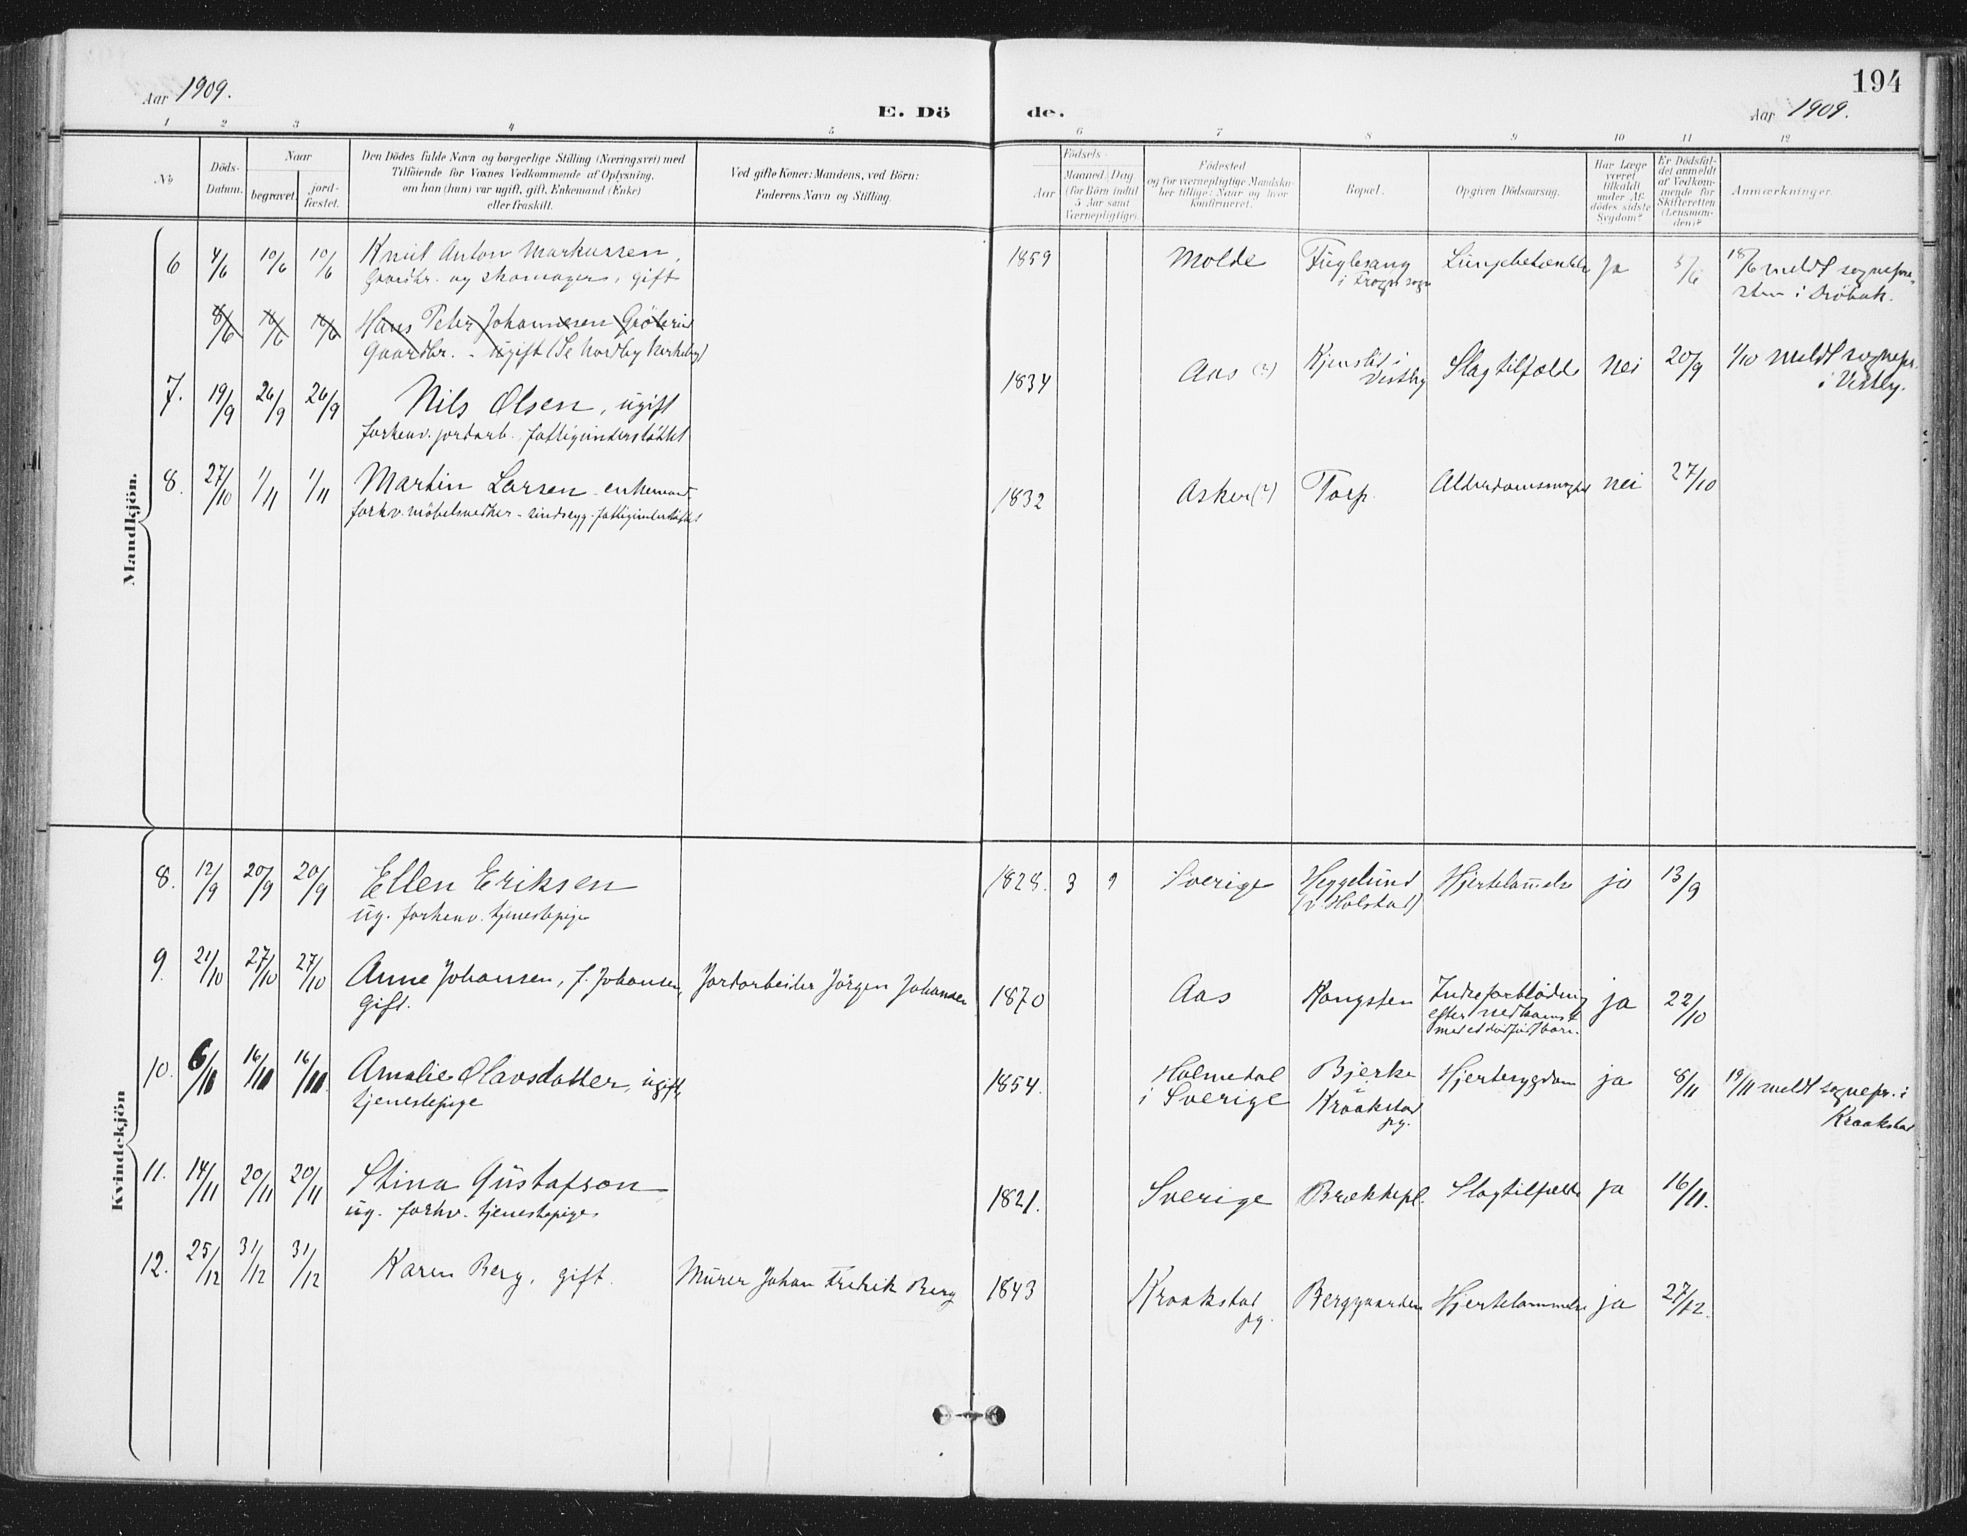 Aar 1909.
E. Döde.
194
Aar 1909.
1 2 3 4 5 6 7 8 9 10 11 12
No
Döds-
Datum.
Naar
begravet.
jord-
fæstet.
Den Dödes fulde Navn og borgerlige Stilling (Næringsvei) med
Tilföiende for Voxnes Vedkommende af Oplysning,
om han (hun) var ugift, gift, Enkemand (Enke)
eller fraskilt.
Ved gifte Koner: Mandens, ved Börn:
Faderens Navn og Stilling.
Födsels-
Aar
Maaned. Dag
(for Börn indtil
5 Aar samt
Værnepligtige).
Födested
og for værnepligtige Mandskaber
tillige: Naar og hvor
konfirmeret.
Bopæl.
Opgiven Dödsaarsag.
Har Læge
været
tilkaldt
under Afdödes
sidste
Sygdom?
Er Dödsfaldet
anmeldt
af Vedkommende
for
Skifteretten
(Lensmanden)?
Anmærkninger.
Mandkjön.
6 4/6 10/6 10/6 Knut Anton Markussen, 1859 Molde Fuglesang Lungebetændelse ja 5/6 18/6 meldt sognepre-
Gaardbr. og skomager, gift i Frogn sogn sten i Dröbak.
8/6 14/6 14/6 Hans Peter Johannesen
Gaardbr. - ugift (Se Nordby kirkebog)
7. 19/9 26/9 26/9 Nils Olsen, ugift 1834 Aas (?) Kjenstad i Vestby Slagtilfælde nei 20/9 1/10 meldt sognepr. i Vestby.
forhenv. jordarb. fattigunderstöttet
8. 27/10 1/11 1/11 Martin Larsen enkemand 1832 Asker (?) Torp. Alderdomssvaghed nei 27/10
forhv. möbelsnedker - sindssyg - fattigunderstöttet
Kvindekjön
8. 12/9 20/9 20/9 Ellen Eriksen 1828. 3 9 Sverige Heggelund Hjertelammelse ja 13/9
ug. forhenv. tjenestepige (v. Holstad)
9. 21/10 27/10 27/10 Anne Johansen, f. Johansen, Jordarbeider Jörgen Johansen 1870 Aas Kongsten Indre forblödning ja 22/10
gift. efter nedkomst
med et dödfödt barn.
10. 6/11 16/11 16/11 Amalie Olavsdatter, ugift, 1854. Holmedal i Sverige Bjerke i Kraakstad pg. Hjertesygdom ja 8/11 19/11 meldt sognepr. i Kraakstad
tjenestepige
11. 14/11 20/11 20/11 Stina Gustafson 1821. Sverige Brækkepl. Slagtilfælde ja 16/11.
ug. forhv. tjenestepige
12. 25/12 31/12 31/12 Karen Berg, gift. Murer Johan Fredrik Berg 1843 Kraakstad pg. Berggaarden Hjertelammelse ja 27/12.